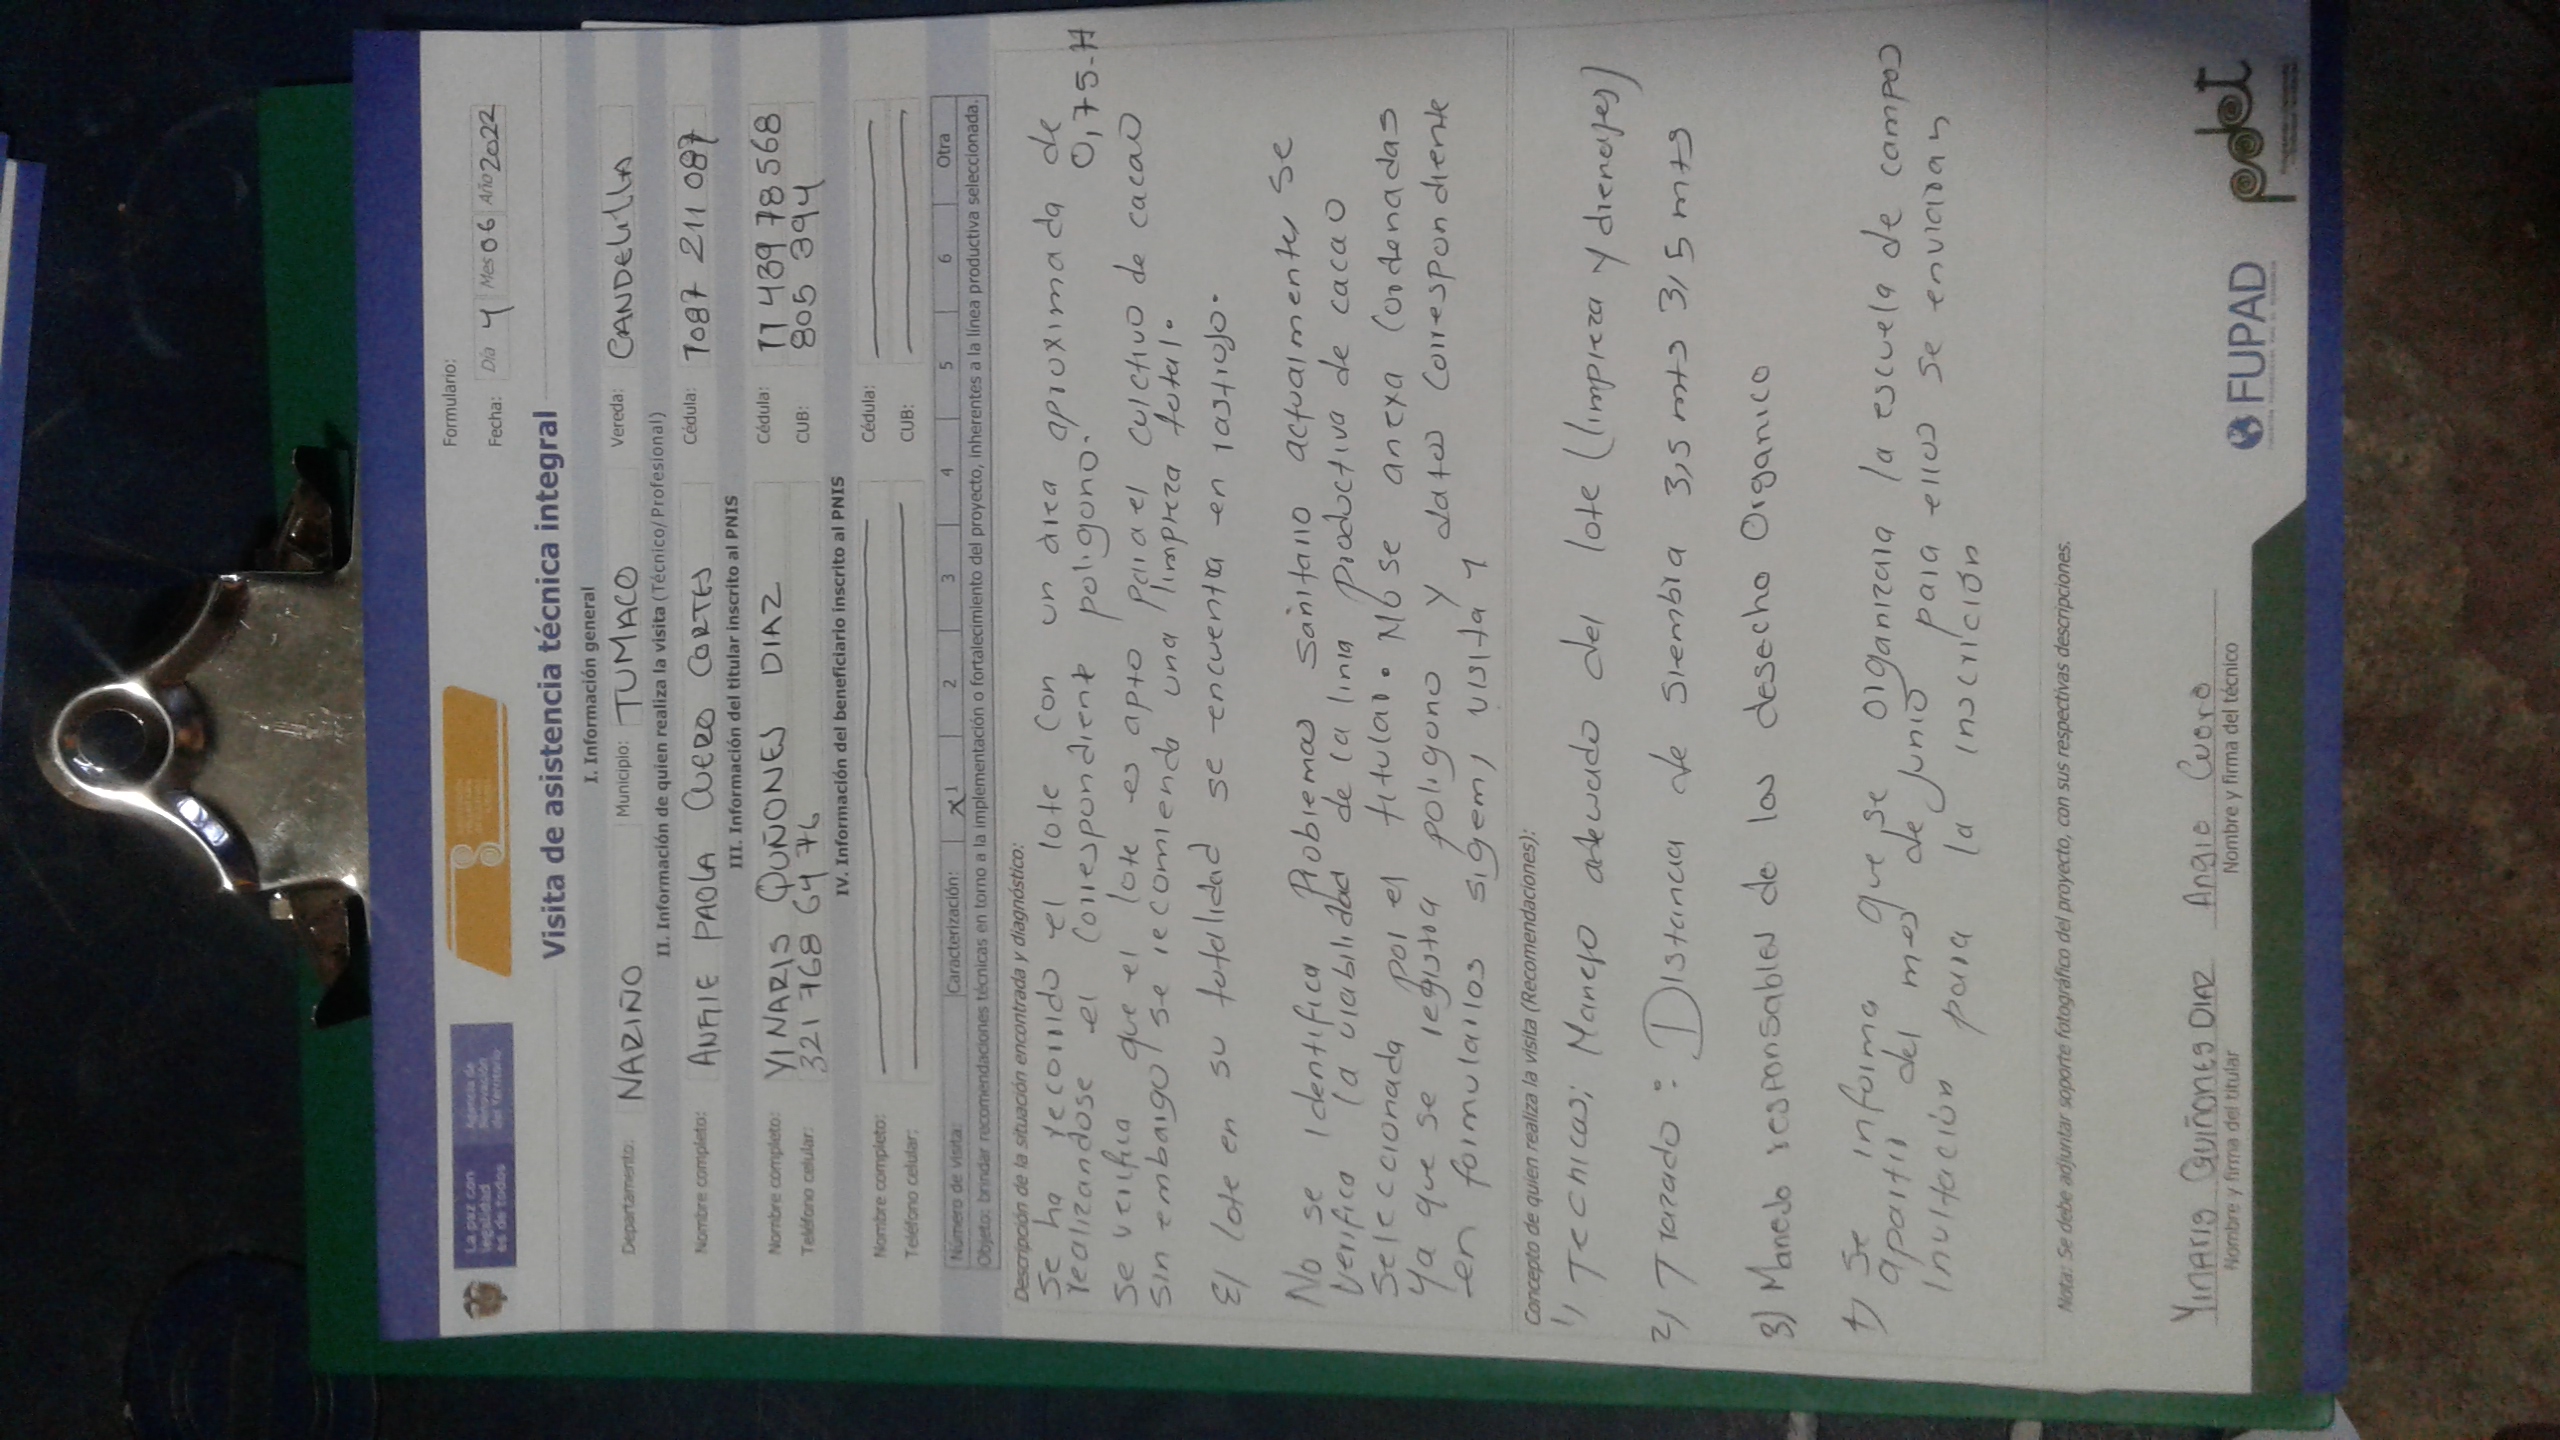 La paz con
legalidad
es de todos
Agencia de
Renovación
del Territorio
Formulario:
Fecha: Día 4 Mes 06 Año 2022
Visita de asistencia técnica integral
I. Información general
Departamento: NARIÑO Municipio: TUMACO Vereda: CANDELILLA
II. Información de quien realiza la visita (Técnico/Profesional)
Nombre completo: ANGIE PAOLA CUERO CORTES Cédula: 1087 211 087
III. Información del titular inscrito al PNIS
Nombre completo: YINARIS QUIÑONES DIAZ Cédula: 11 439 78 568
Teléfono celular: 321 768 64 76 CUB: 805 394
IV. Información del beneficiario inscrito al PNIS
Nombre completo: Cédula:
Teléfono celular: CUB:
Número de visita: Caracterización: X 1 2 3 4 5 6 Otra
Objeto: brindar recomendaciones técnicas en torno a la implementación o fortalecimiento del proyecto, inherentes a la línea productiva seleccionada.
Descripción de la situación encontrada y diagnóstico:
Se ha recorrido el lote con un area aproximada de
realizandose el correspondiente poligono. 0,75-H
Se verifica que el lote es apto para el cultivo de cacao
sin embargo se recomienda una limpieza total.
El lote en su totalidad se encuentra en rastrojo.
No se identifica Problemas sanitario actualmente, se
verifica la viabilidad de la linia productiva de cacao
seleccionada por el titular. No se anexa cordenadas
ya que se registra poligono y datos correspondiente
en formularios sigem, visita 1
Concepto de quien realiza la visita (Recomendaciones):
1) Tecnicas; Manejo adewado del lote (limpieza y drenajes)
2) Trazado: Distancia de siembra 3,5 mts 3,5 mts
3) Manejo responsables de los desecho Organico
4) Se informa que se organizara la escuela de campos
apartir del mes de Junio para ellos se enviaran
Invitación para la inscrición
Nota: Se debe adjuntar soporte fotográfico del proyecto, con sus respectivas descripciones.
Yinaris Quiñones DIAZ Angie Cuero
Nombre y firma del titular Nombre y firma del técnico
FUPAD
pdet